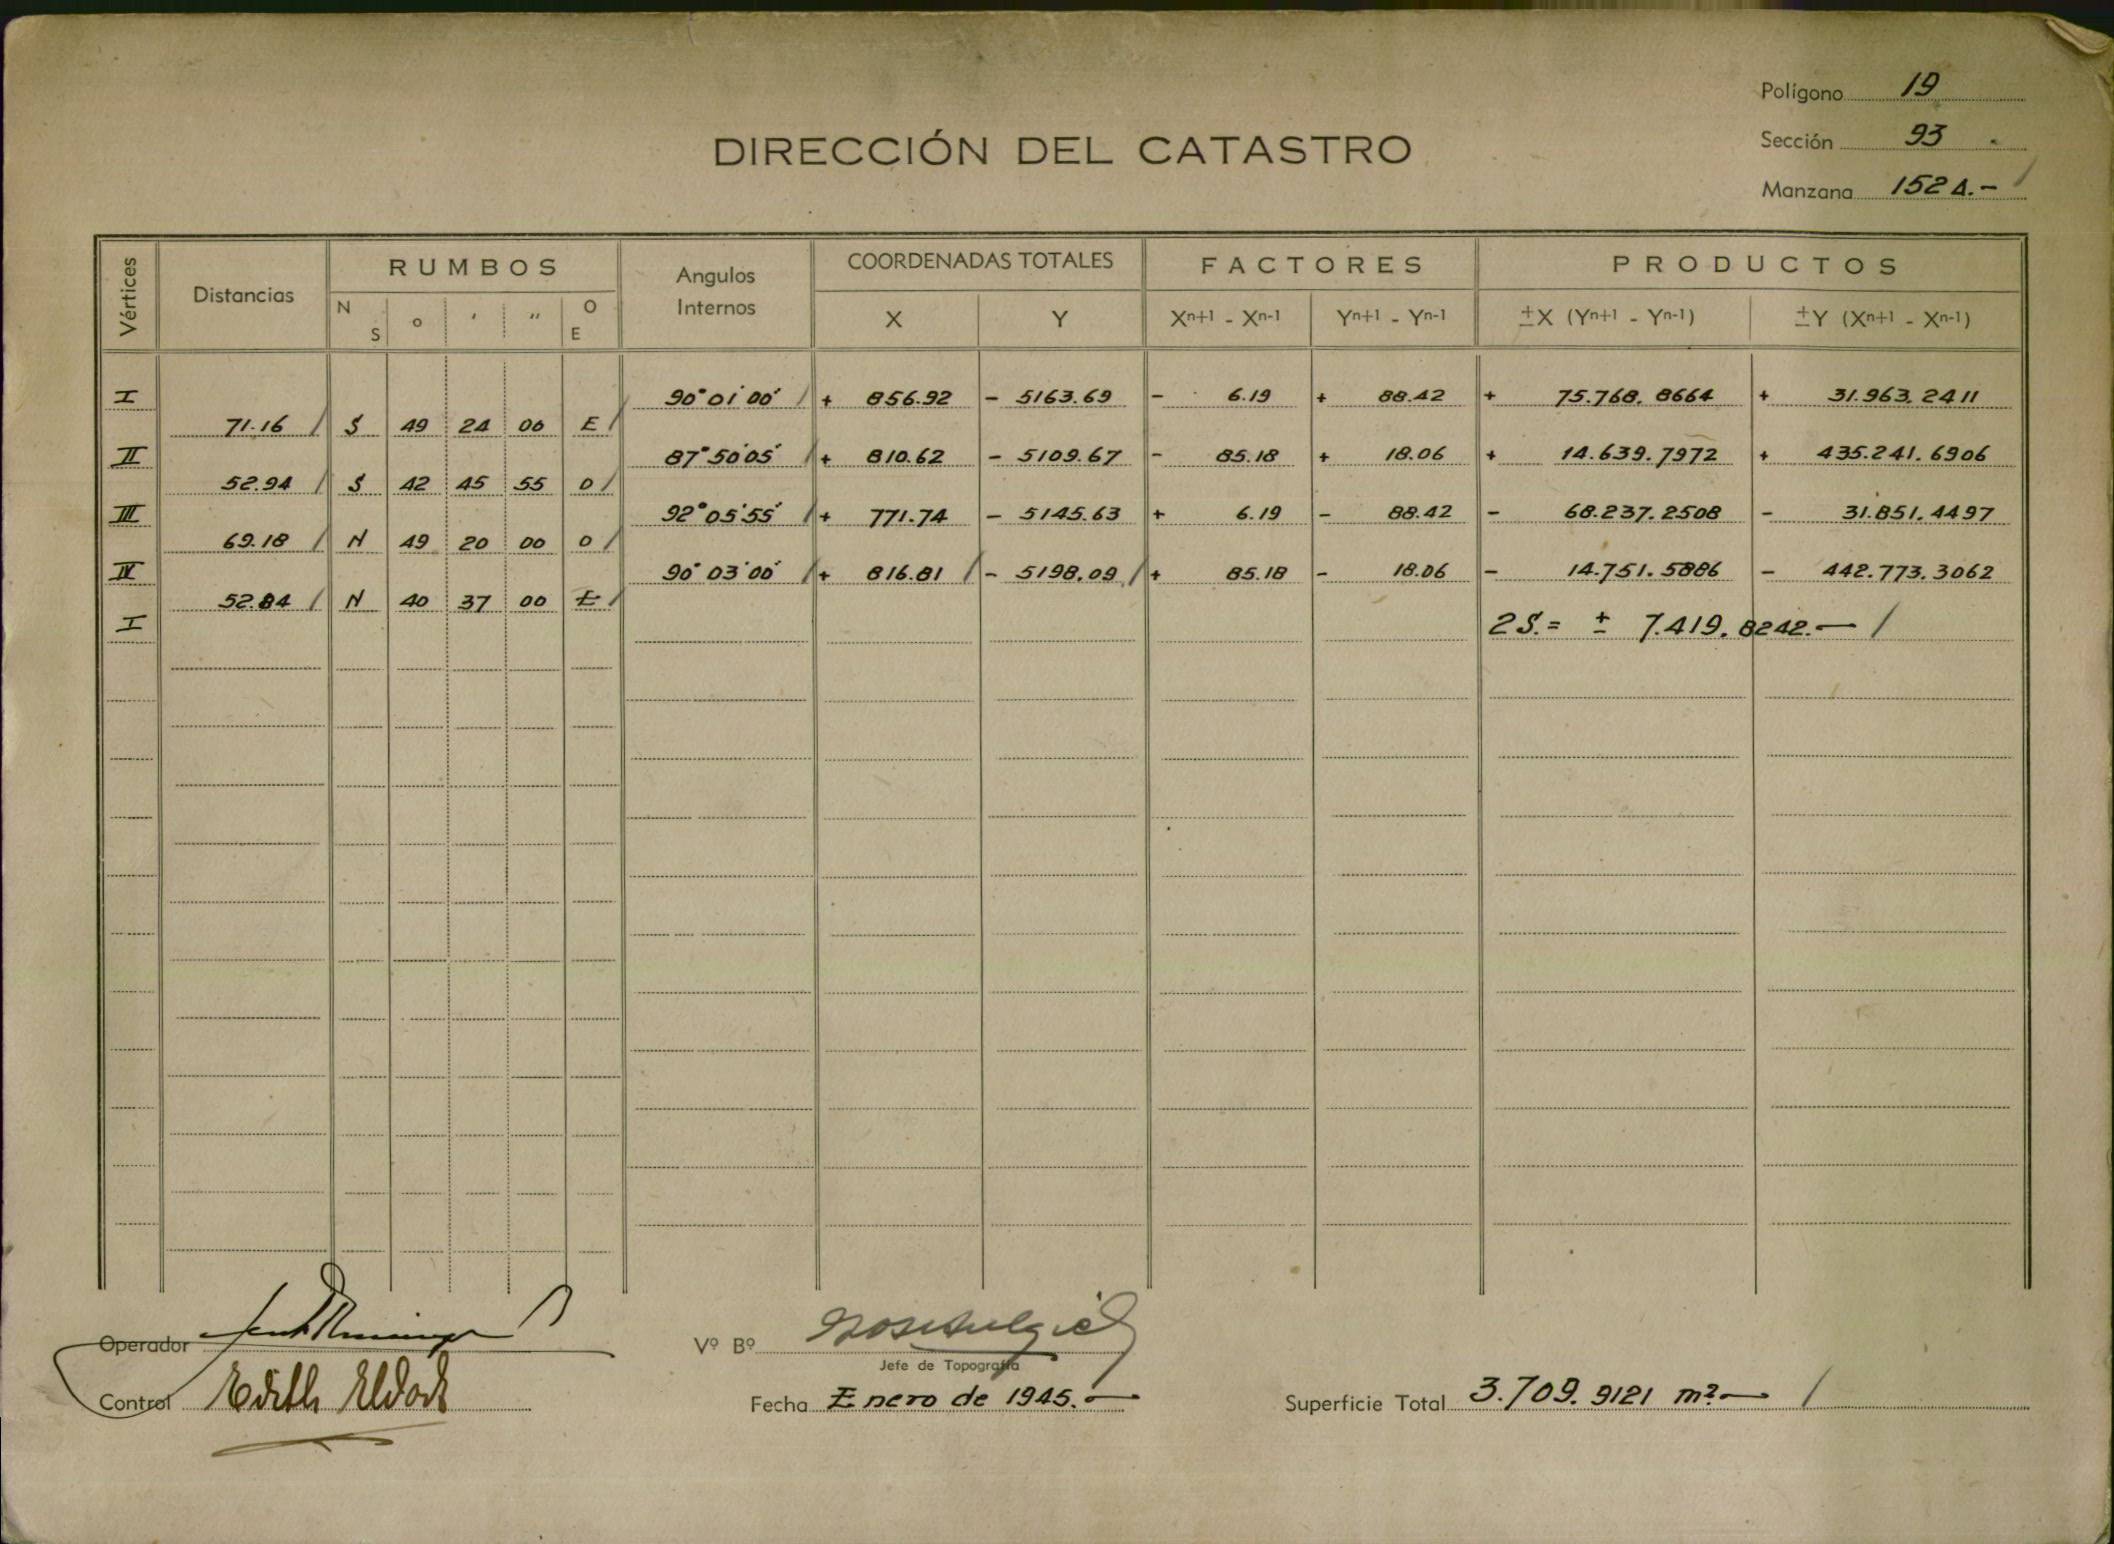 Polígono 19
DIRECCIÓN DEL CATASTRO
Sección 93
Manzana 152 A.-
Vértices Distancias RUMBOS Angulos Internos COORDENADAS TOTALES FACTORES PRODUCTOS
N S o ' " O E X Y Xn+1 - Xn-1 Yn+1 - Yn-1 ±X (Yn+1 - Yn-1) ±Y (Xn+1 - Xn-1)
I 90° 01' 00" + 856.92 - 5163.69 - 6.19 + 88.42 + 75.768.8664 + 31.963.2411
71.16 S 49 24 00 E
II 87° 50' 05" + 810.62 - 5109.67 - 85.18 + 18.06 + 14.639.7972 + 435.241.6906
52.94 S 42 45 55 O
III 92° 05' 55" + 771.74 - 5145.63 + 6.19 - 88.42 - 68.237.2508 - 31.851.4497
69.18 N 49 20 00 O
IV 90° 03' 00" + 816.81 - 5198.09 + 85.18 - 18.06 - 14.751.5886 - 442.773.3062
52.84 N 40 37 00 E
I 2S.= ± 7.419.8242.-
Operador
Vº Bº
Jefe de Topografía
Control Edith
Fecha Enero de 1945.-
Superficie Total 3.709.9121 m².-